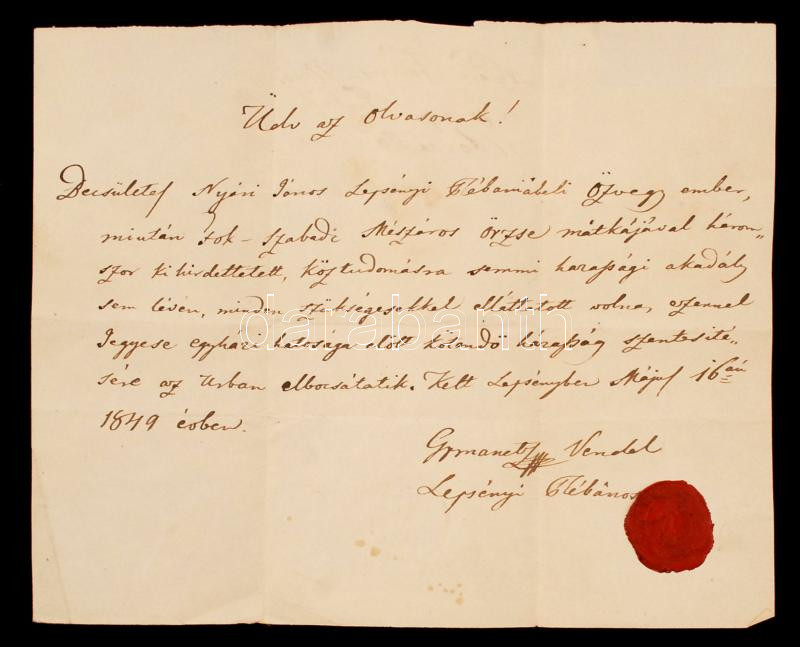 Üdv az olvasonak!
Becsületes Nyári János Lepsényi Plébaniabeli Özvegy ember,
miután Fok-Szabadi Mészáros Örzse mátkájával három„
szor ki hirdettetett, köztudomásra semmi harassági akadály
sem lévén, minden szükségesekkel elláttatott volna, ezennel
Jegyese egyházi hatósága előtt kötandő házasság szentesité„
sére az Urban elbocsátatik. Kelt Lepsényben Május 16án
1849 évben.
Vendel
Lepsényi Plébános
darabanth